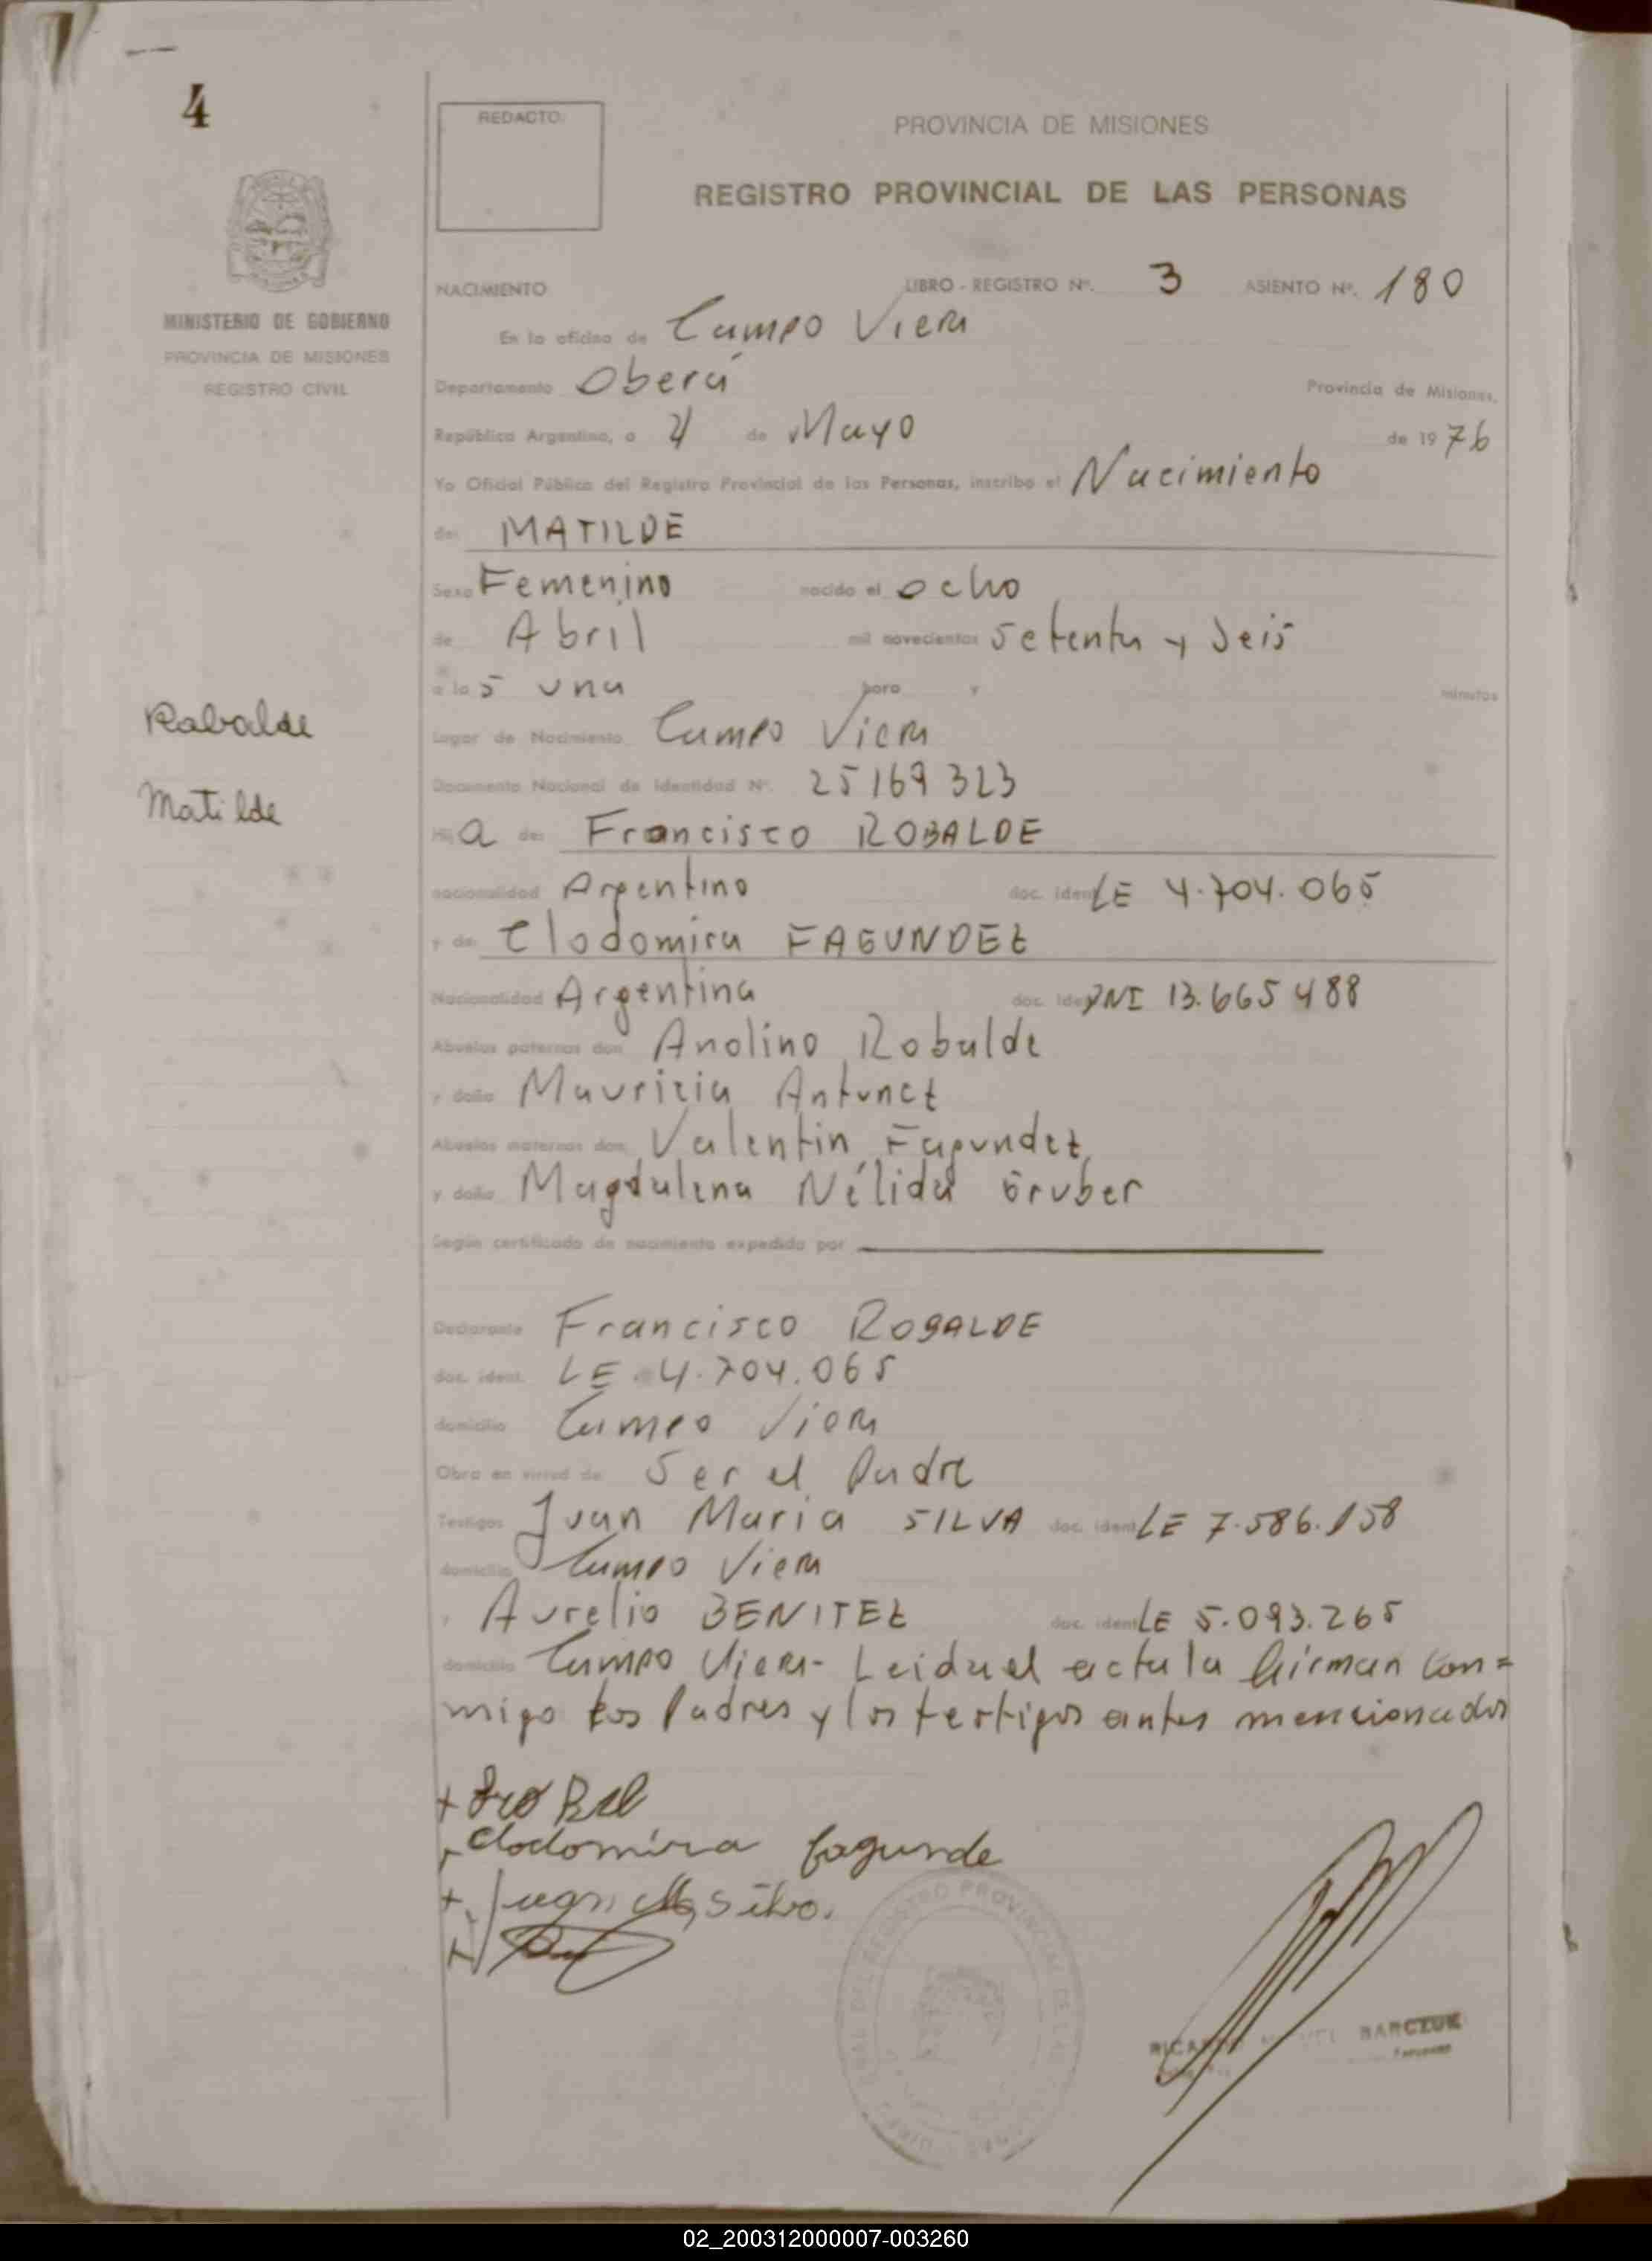 4
REDACTO:
PROVINCIA DE MISIONES
REGISTRO PROVINCIAL DE LAS PERSONAS
MINISTERIO DE GOBIERNO
PROVINCIA DE MISIONES
REGISTRO CIVIL
NACIMIENTO LIBRO - REGISTRO Nº. 3 ASIENTO Nº. 180
En la oficina de Campo Viera
Departamento Oberá Provincia de Misiones,
República Argentina, a de Mayo de 1976
Yo Oficial Público del Registro Provincial de las Personas, inscribo el Nacimiento
de: MATILDE
Sexo Femenino nacido el ocho
de Abril mil novecientos setenta y Seis
a las una hora y minutos
Lugar de Nacimiento Campo Viera
Documento Nacional de Identidad Nº. 25169323
Hija de: Francisco ROBALDE
nacionalidad Argentino doc. ident. LE 4.704.065
y de Clodomira FAGUNDEZ
Nacionalidad Argentina doc. Iden. DNI 13.665488
Abuelos paternos don Anolino Robalde
y doña Mauricia Antunez
Abuelos maternos don Valentin Fagundez
y doña Magdalena Nélida Gruber
Según certificado de nacimiento expedido por
Declarante Francisco ROBALDE
doc. ident. LE 4.704.065
domicilio Campo Viera
Obra en virtud de Ser el Padre
Testigos Juan Maria SILVA doc. ident. LE 7.586.158
domicilio Campo Viera
y Aurelio BENITEZ doc. ident. LE 5.093.265
domicilio Campo Viera- Leida el acta la firman con=
migo los Padres y los testigos antes mencionados
Rabalde
Matilde
Clodomira fagunde
Juan Ma Silva.
BARCZUK
02_200312000007-003260